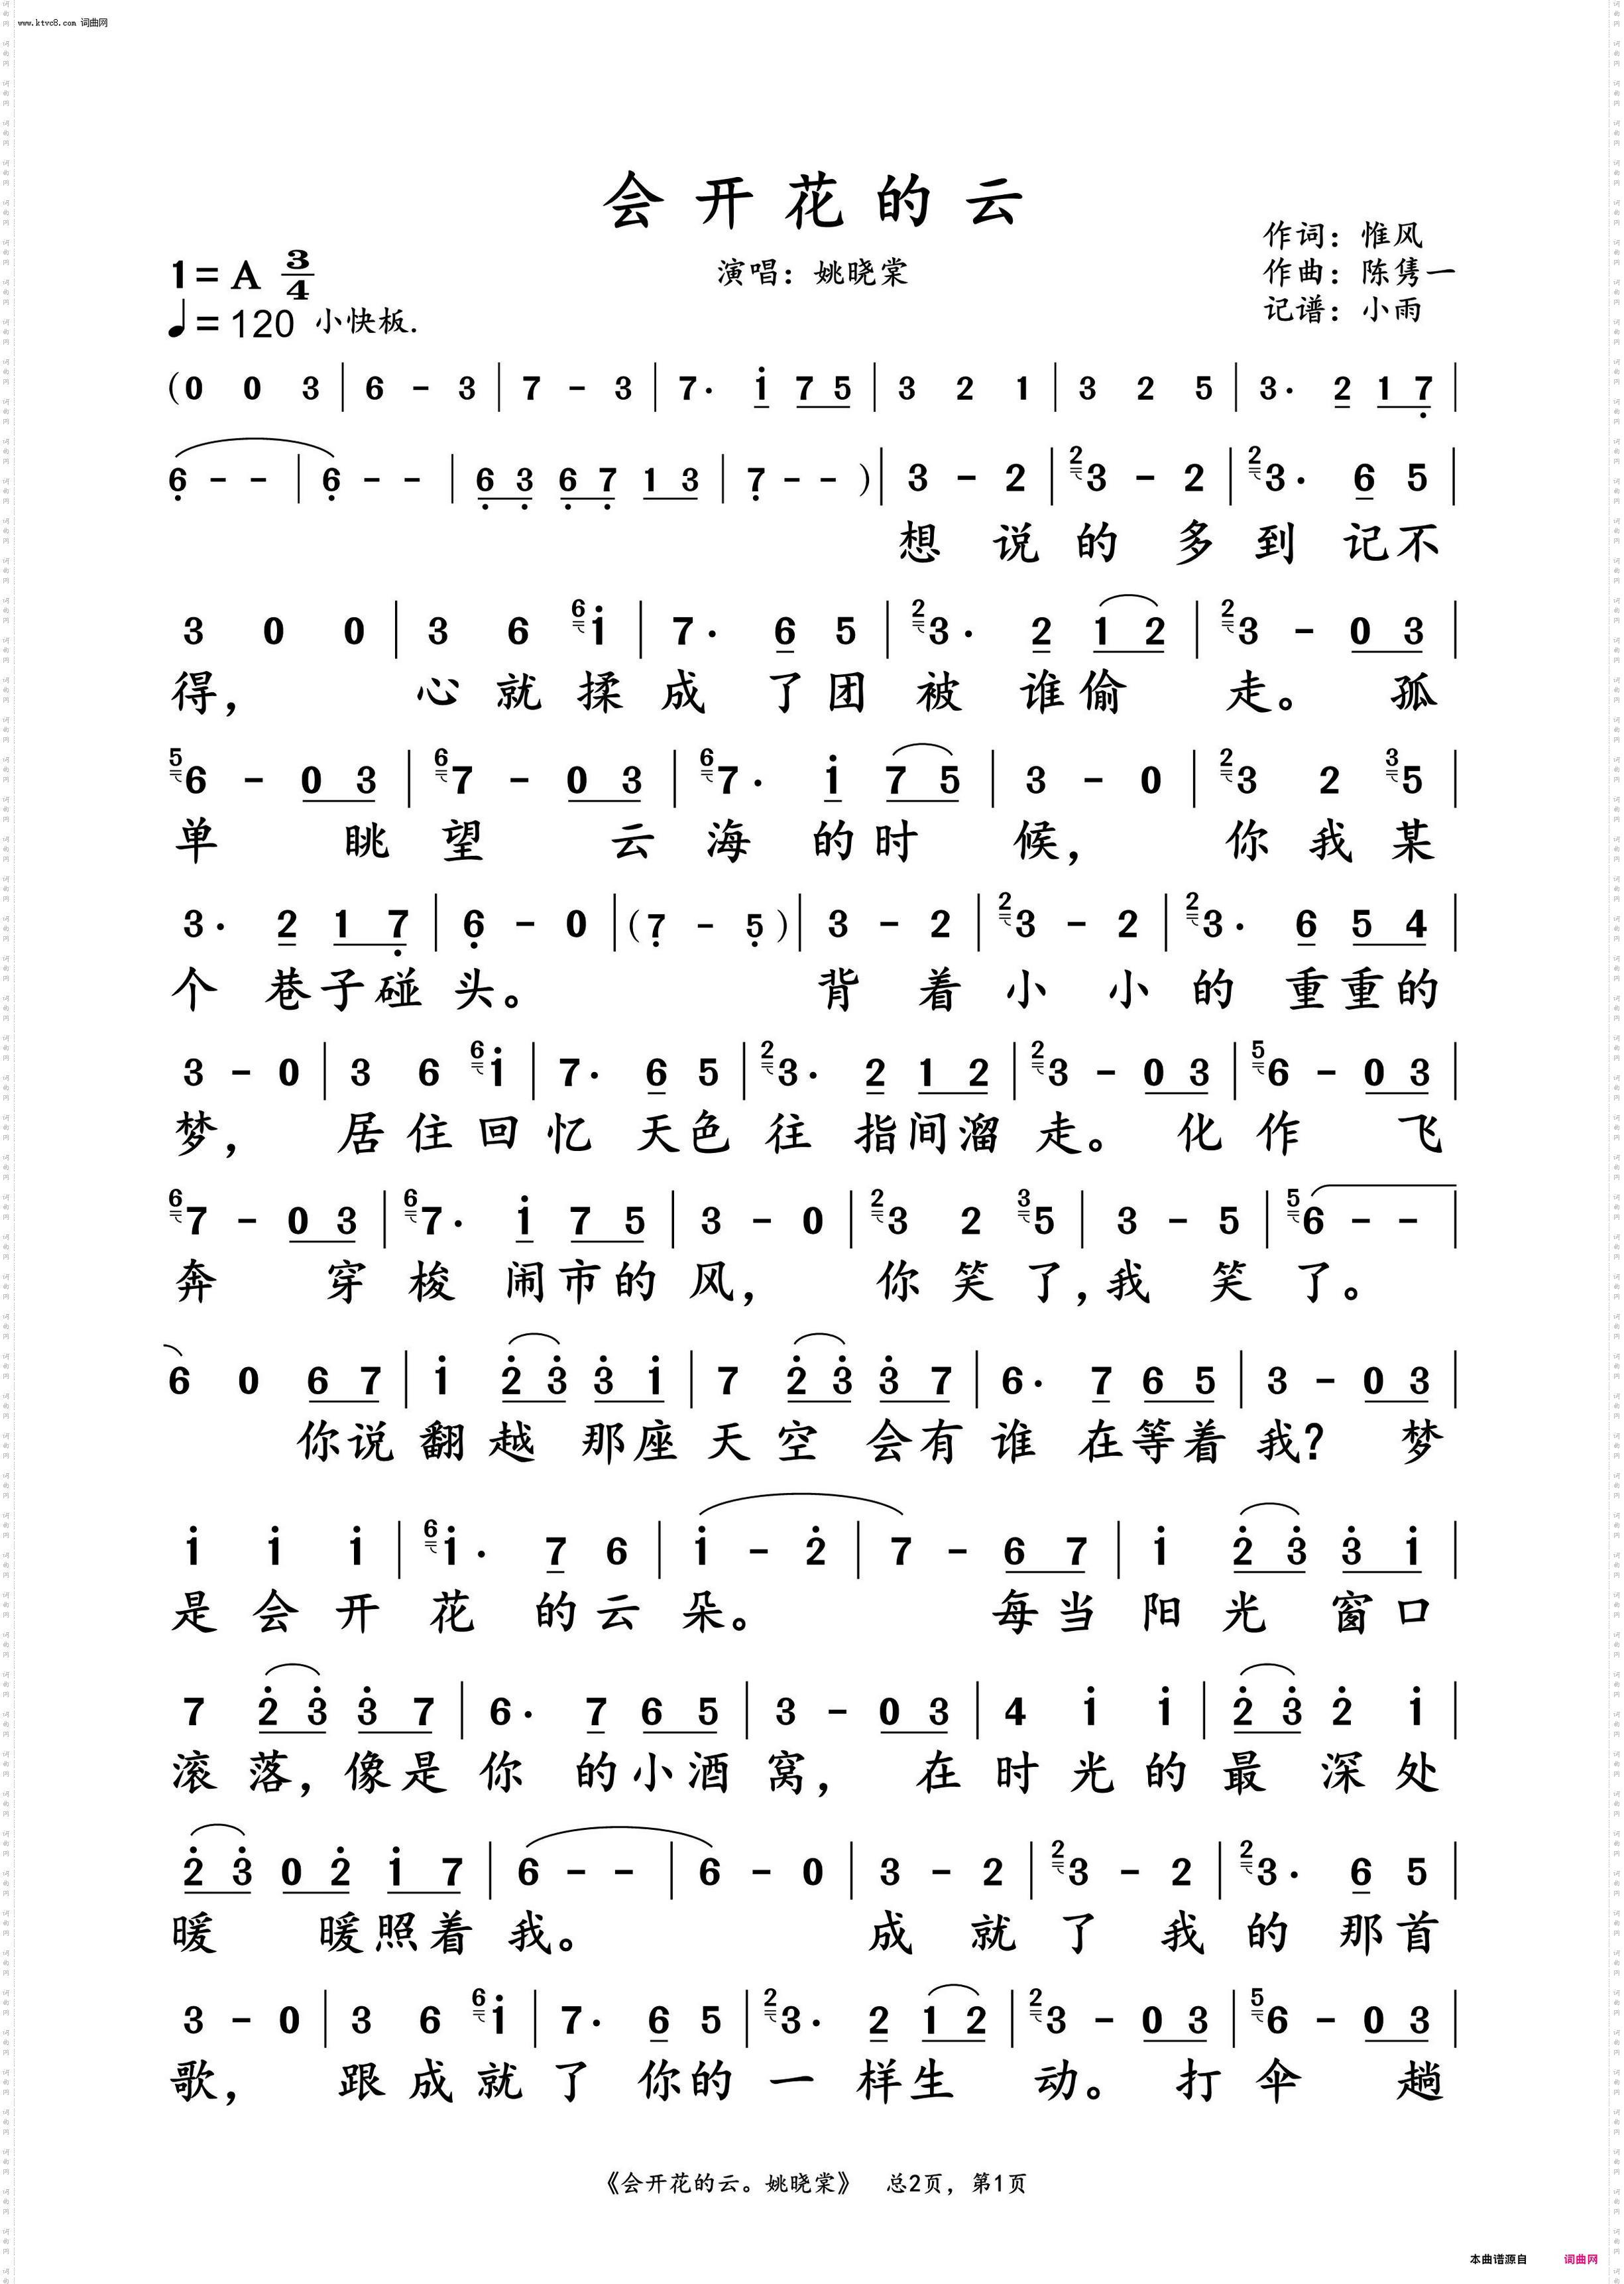 www.ktvc8.com 词曲网
会开花的云
作词：惟风
1=A 3/4 演唱：姚晓棠 作曲：陈隽一
♩=120 小快板. 记谱：小雨
(0 0 3 | 6 - 3 | 7 - 3 | 7· i̇ 7 5 | 3 2 1 | 3 2 5 | 3· 2 1 7̣ |
6̣ - - | 6̣ - - | 6̣ 3̣ 6̣ 7̣ 1 3 | 7̣ - - ) | 3 - 2 | 2 3 - 2 | 2 3· 6 5 |
想 说 的 多 到 记不
3 0 0 | 3 6 6 1̇ | 7· 6 5 | 2 3· 2 1 2 | 2 3 - 0 3 |
得， 心 就 揉 成 了团 被 谁偷 走。 孤
5 6 - 0 3 | 6 7 - 0 3 | 6 7· 1̇ 7 5 | 3 - 0 | 2 3 2 3 5 |
单 眺 望 云 海 的时 候， 你 我 某
3· 2 1 7̣ | 6̣ - 0 | (7̣ - 5̣) | 3 - 2 | 2 3 - 2 | 2 3· 6 5 4 |
个 巷子碰 头。 背 着 小 小 的 重重的
3 - 0 | 3 6 6 1̇ | 7· 6 5 | 2 3· 2 1 2 | 2 3 - 0 3 | 5 6 - 0 3 |
梦， 居 住 回 忆 天色 往 指间溜 走。 化 作 飞
6 7 - 0 3 | 6 7· 1̇ 7 5 | 3 - 0 | 2 3 2 3 5 | 3 - 5 | 5 6 - - |
奔 穿 梭 闹市的 风， 你 笑 了，我 笑 了。
6 0 6 7 | 1̇ 2̇ 3̇ 3̇ 1̇ | 7 2̇ 3̇ 3̇ 7 | 6· 7 6 5 | 3 - 0 3 |
你说 翻 越 那座 天 空 会有 谁 在等着 我? 梦
1̇ 1̇ 1̇ | 6 1̇· 7 6 | 1̇ - 2̇ | 7 - 6 7 | 1̇ 2̇ 3̇ 3̇ 1̇ |
是 会 开 花 的云 朵。 每当 阳 光 窗口
7 2̇ 3̇ 3̇ 7 | 6· 7 6 5 | 3 - 0 3 | 4 1̇ 1̇ | 2̇ 3̇ 2̇ 1̇ |
滚 落，像是 你 的小酒 窝， 在 时 光 的 最 深 处
2̇ 3̇ 0 2̇ 1̇ 7 | 6 - - | 6 - 0 | 3 - 2 | 2 3 - 2 | 2 3· 6 5 |
暖 暖照着 我。 成 就 了 我 的 那首
3 - 0 | 3 6 6 1̇ | 7· 6 5 | 2 3· 2 1 2 | 2 3 - 0 3 | 5 6 - 0 3 |
歌， 跟 成 就 了 你的 一 样生 动。 打 伞 趟
《会开花的云。姚晓棠》 总2页，第1页
本曲谱源自 词曲网